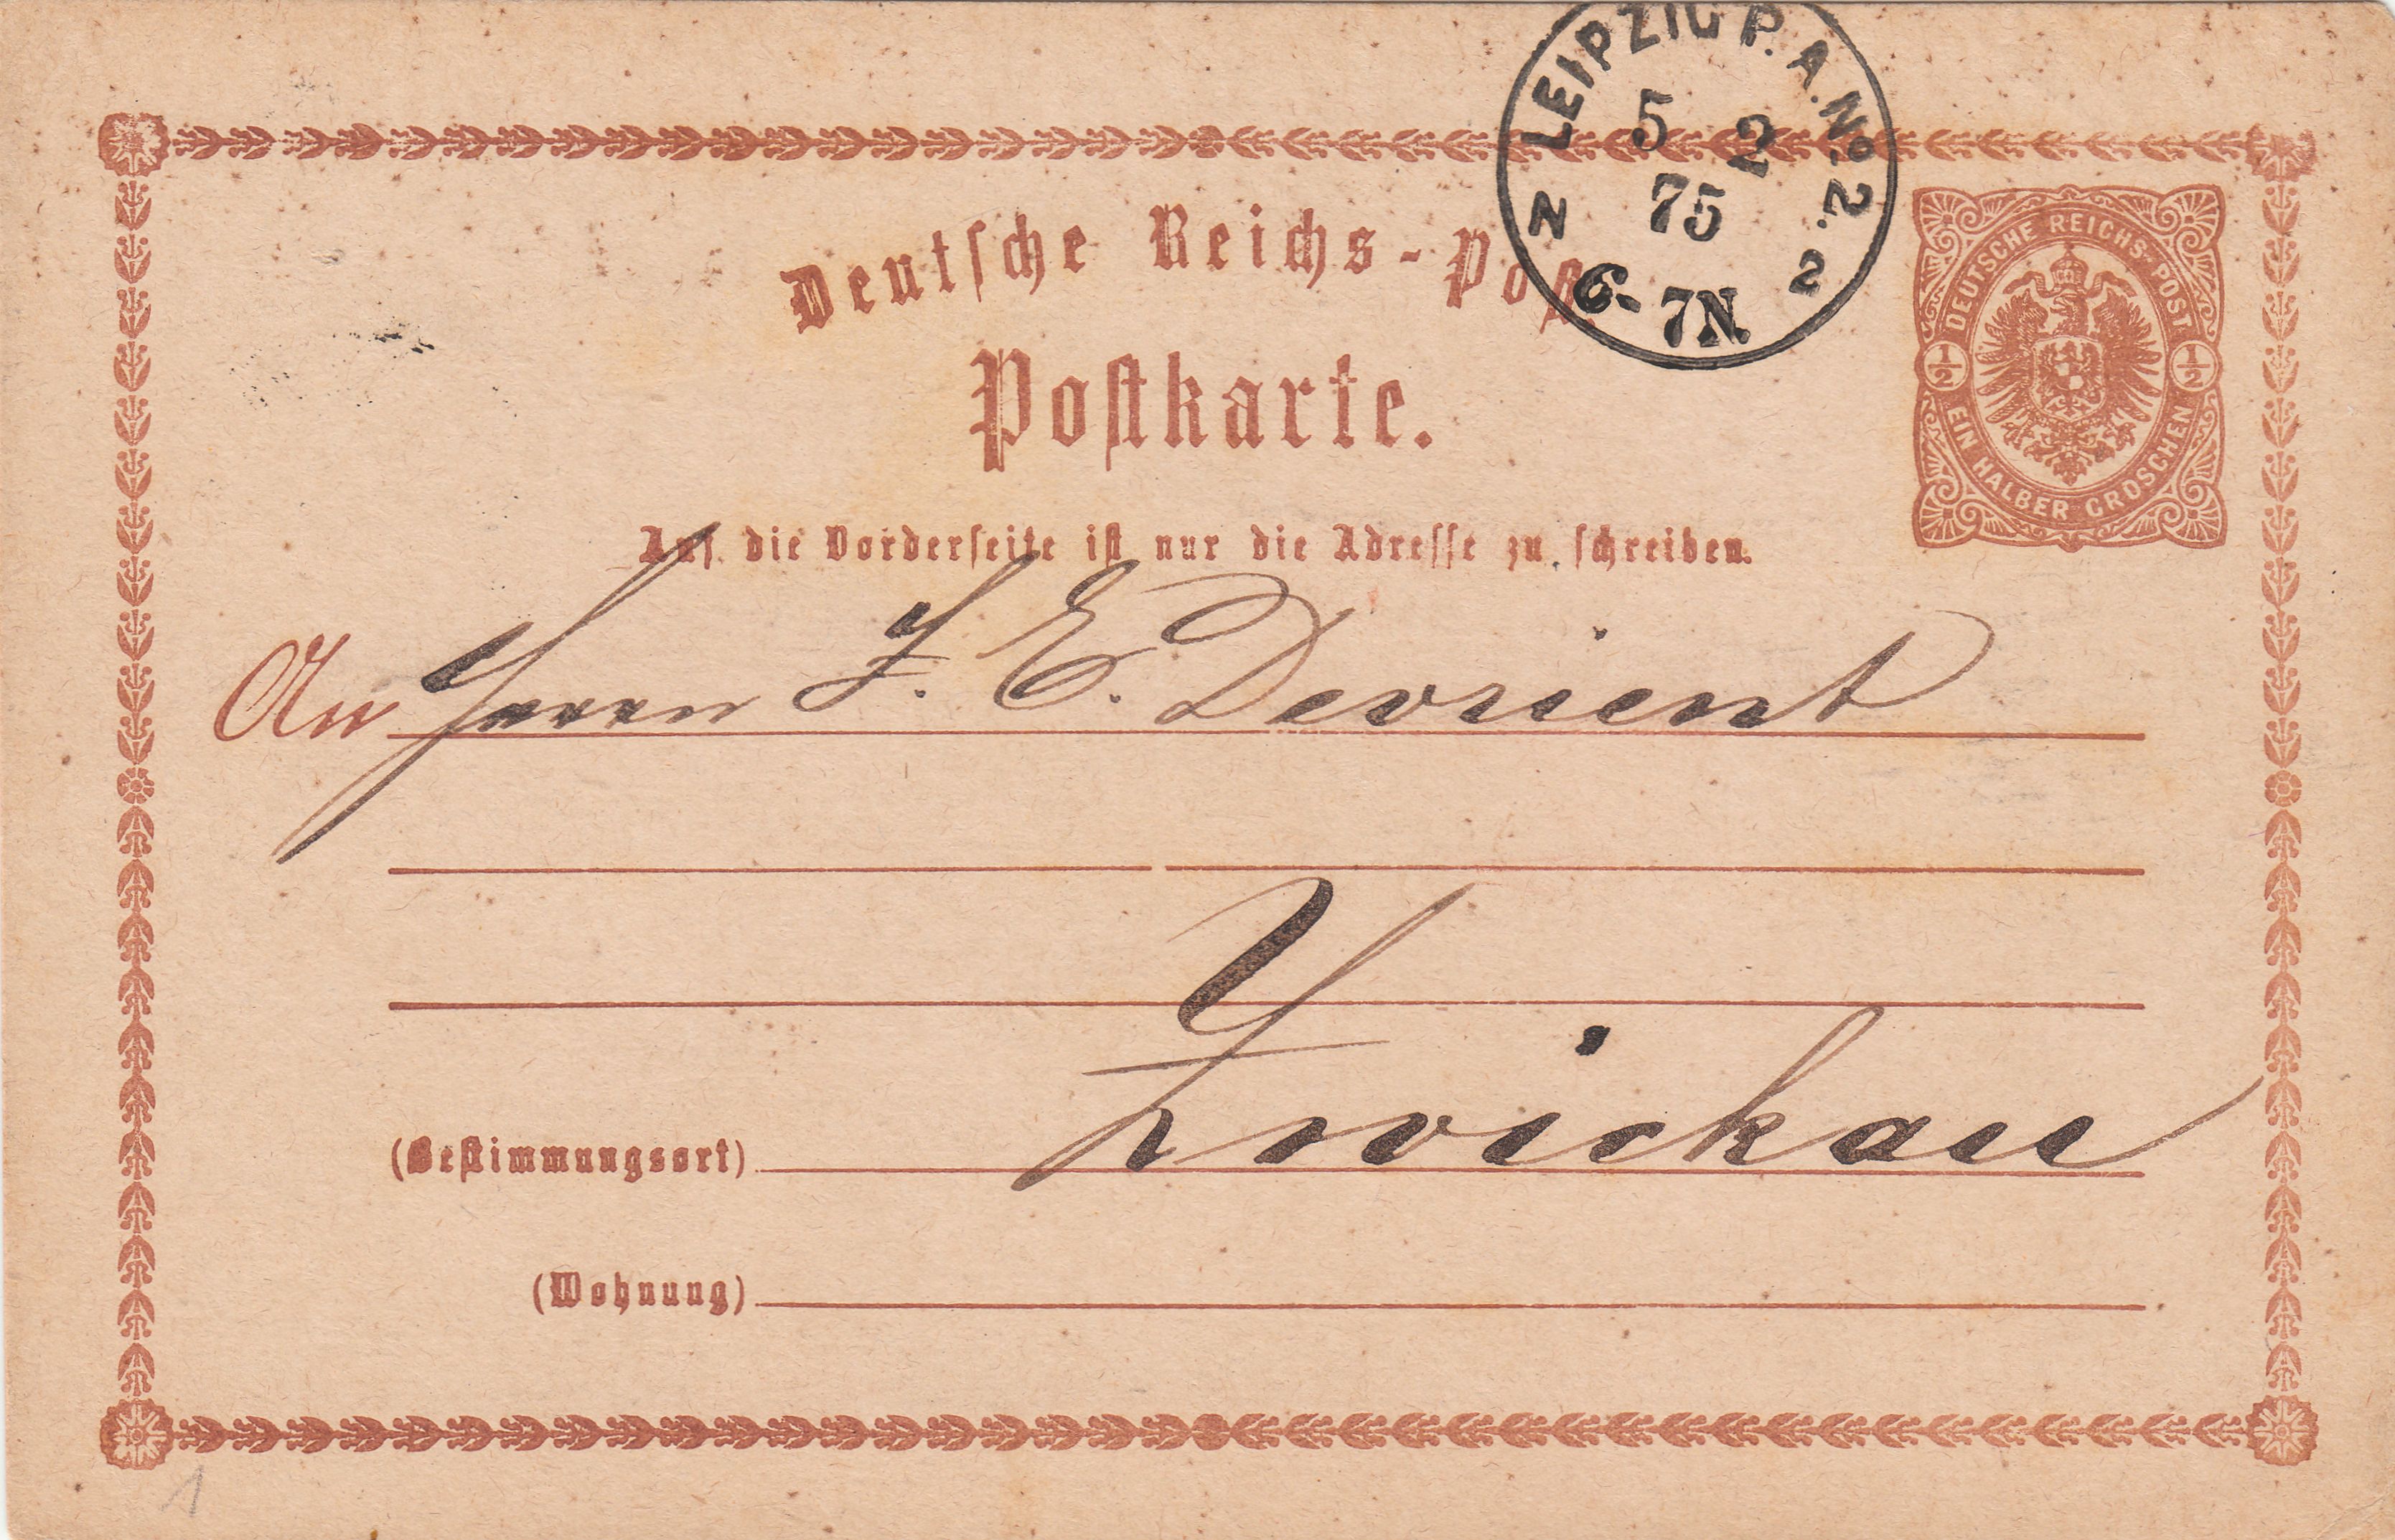 LEIPZIG P. A. No. 2.
5 2
75
6-7N
N 2
Deutsche Reichs-Post.
DEUTSCHE REICHS-POST
1/2 1/2
EIN HALBER GROSCHEN
Postkarte.
Auf die Vorderseite ist nur die Adresse zu schreiben.
An Herrn J. E. Devrient
Zwickau
(Bestimmungsort)
(Wohnung)
1